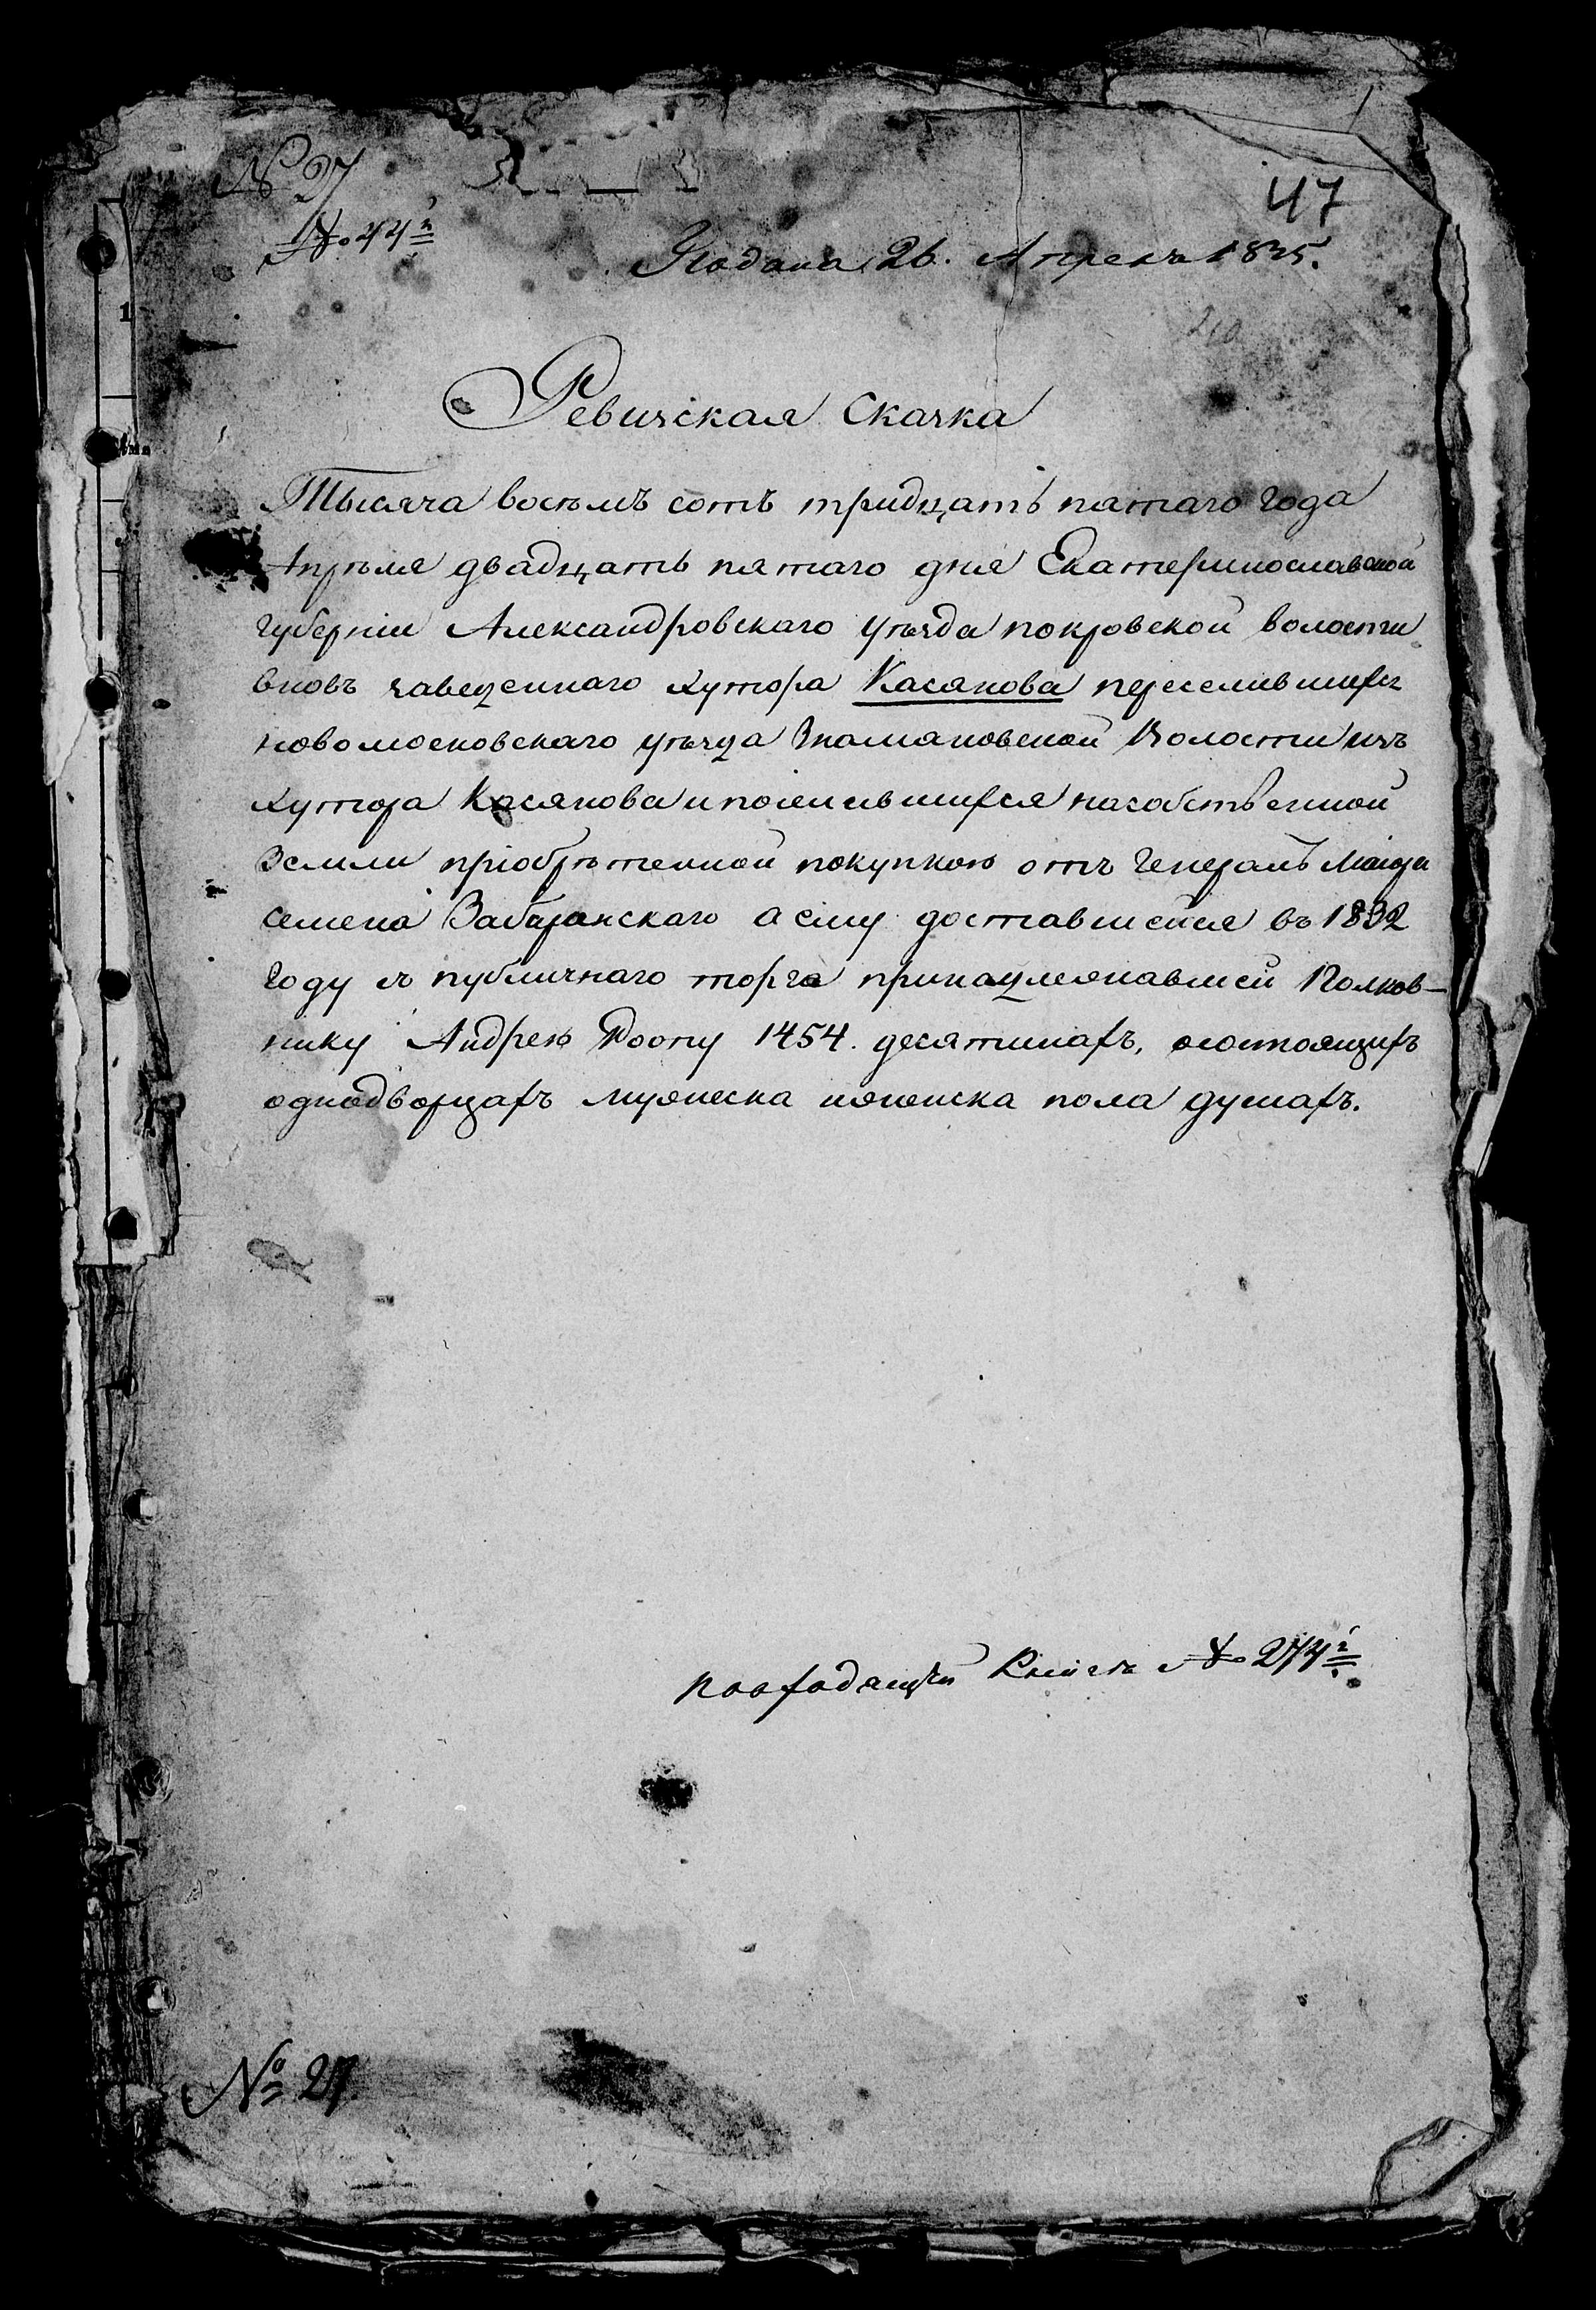 № 27
47
№ 44й
Подана 26. Апреля 1835.
Ревижская Скачка
Тысяча восемъ сотъ тридцать пятаго года
Апрѣля двадцать пятаго дня Екатеринославской
губерніи Александровскаго уѣзда покровской волости
вновь заведеннаго хутора Касянова переселившихся
новомосковскаго уѣзда Знаменовской Волости изъ
хутора Касянова и поселившихся на собственной
Земли пріобрѣтенной покупкою отъ Генералъ Маіора
семена а ему доставшейся въ 1832
Году съ публичнаго торга принадлежавшей Полков-
нику Андрею Роопу 1454. десятинахъ, о состоящихъ
однодворцахъ мужеска и женска пола душахъ.
по входящей Книгѣ № 274й
№ 27